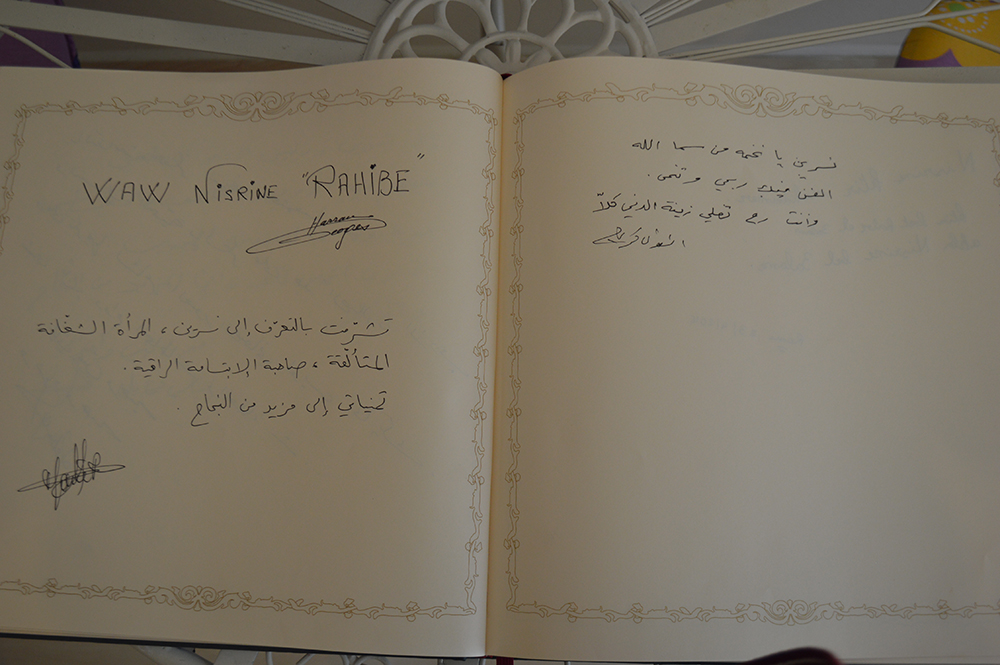 WAW NISRINE "RAHIBE"
Hassan
تشرّفت بالتعرّف إلى نسرين، المرأة الشغّالة
المتألّقة، صاحبة الإبتسامة الراقية.
تمنياتي إلى مزيد من النجاح.
نسرين يا نجمه من سما الله
الفن رسمي وتنمى.
وانت رح تضلي زينة الدني كلّا